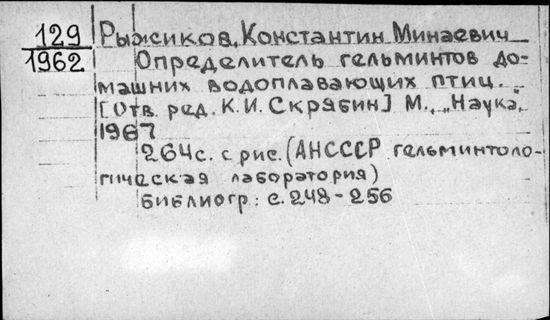 129 Рыжиков, Константин Минаевич
1962 Определитель гельминтов до-
машних водоплавающих птиц. -
[Отв. ред. К.И. Скрябин] М., „Наука",
1967
264с. с рис. (АНСССР гельминтоло-
гическая лаборатория)
библиогр: с. 248-256